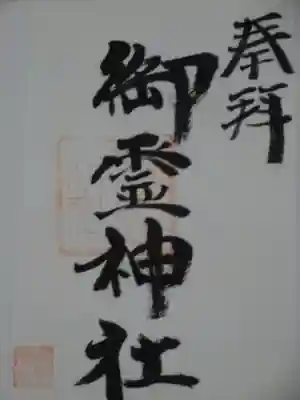 奉拜
御霊神社